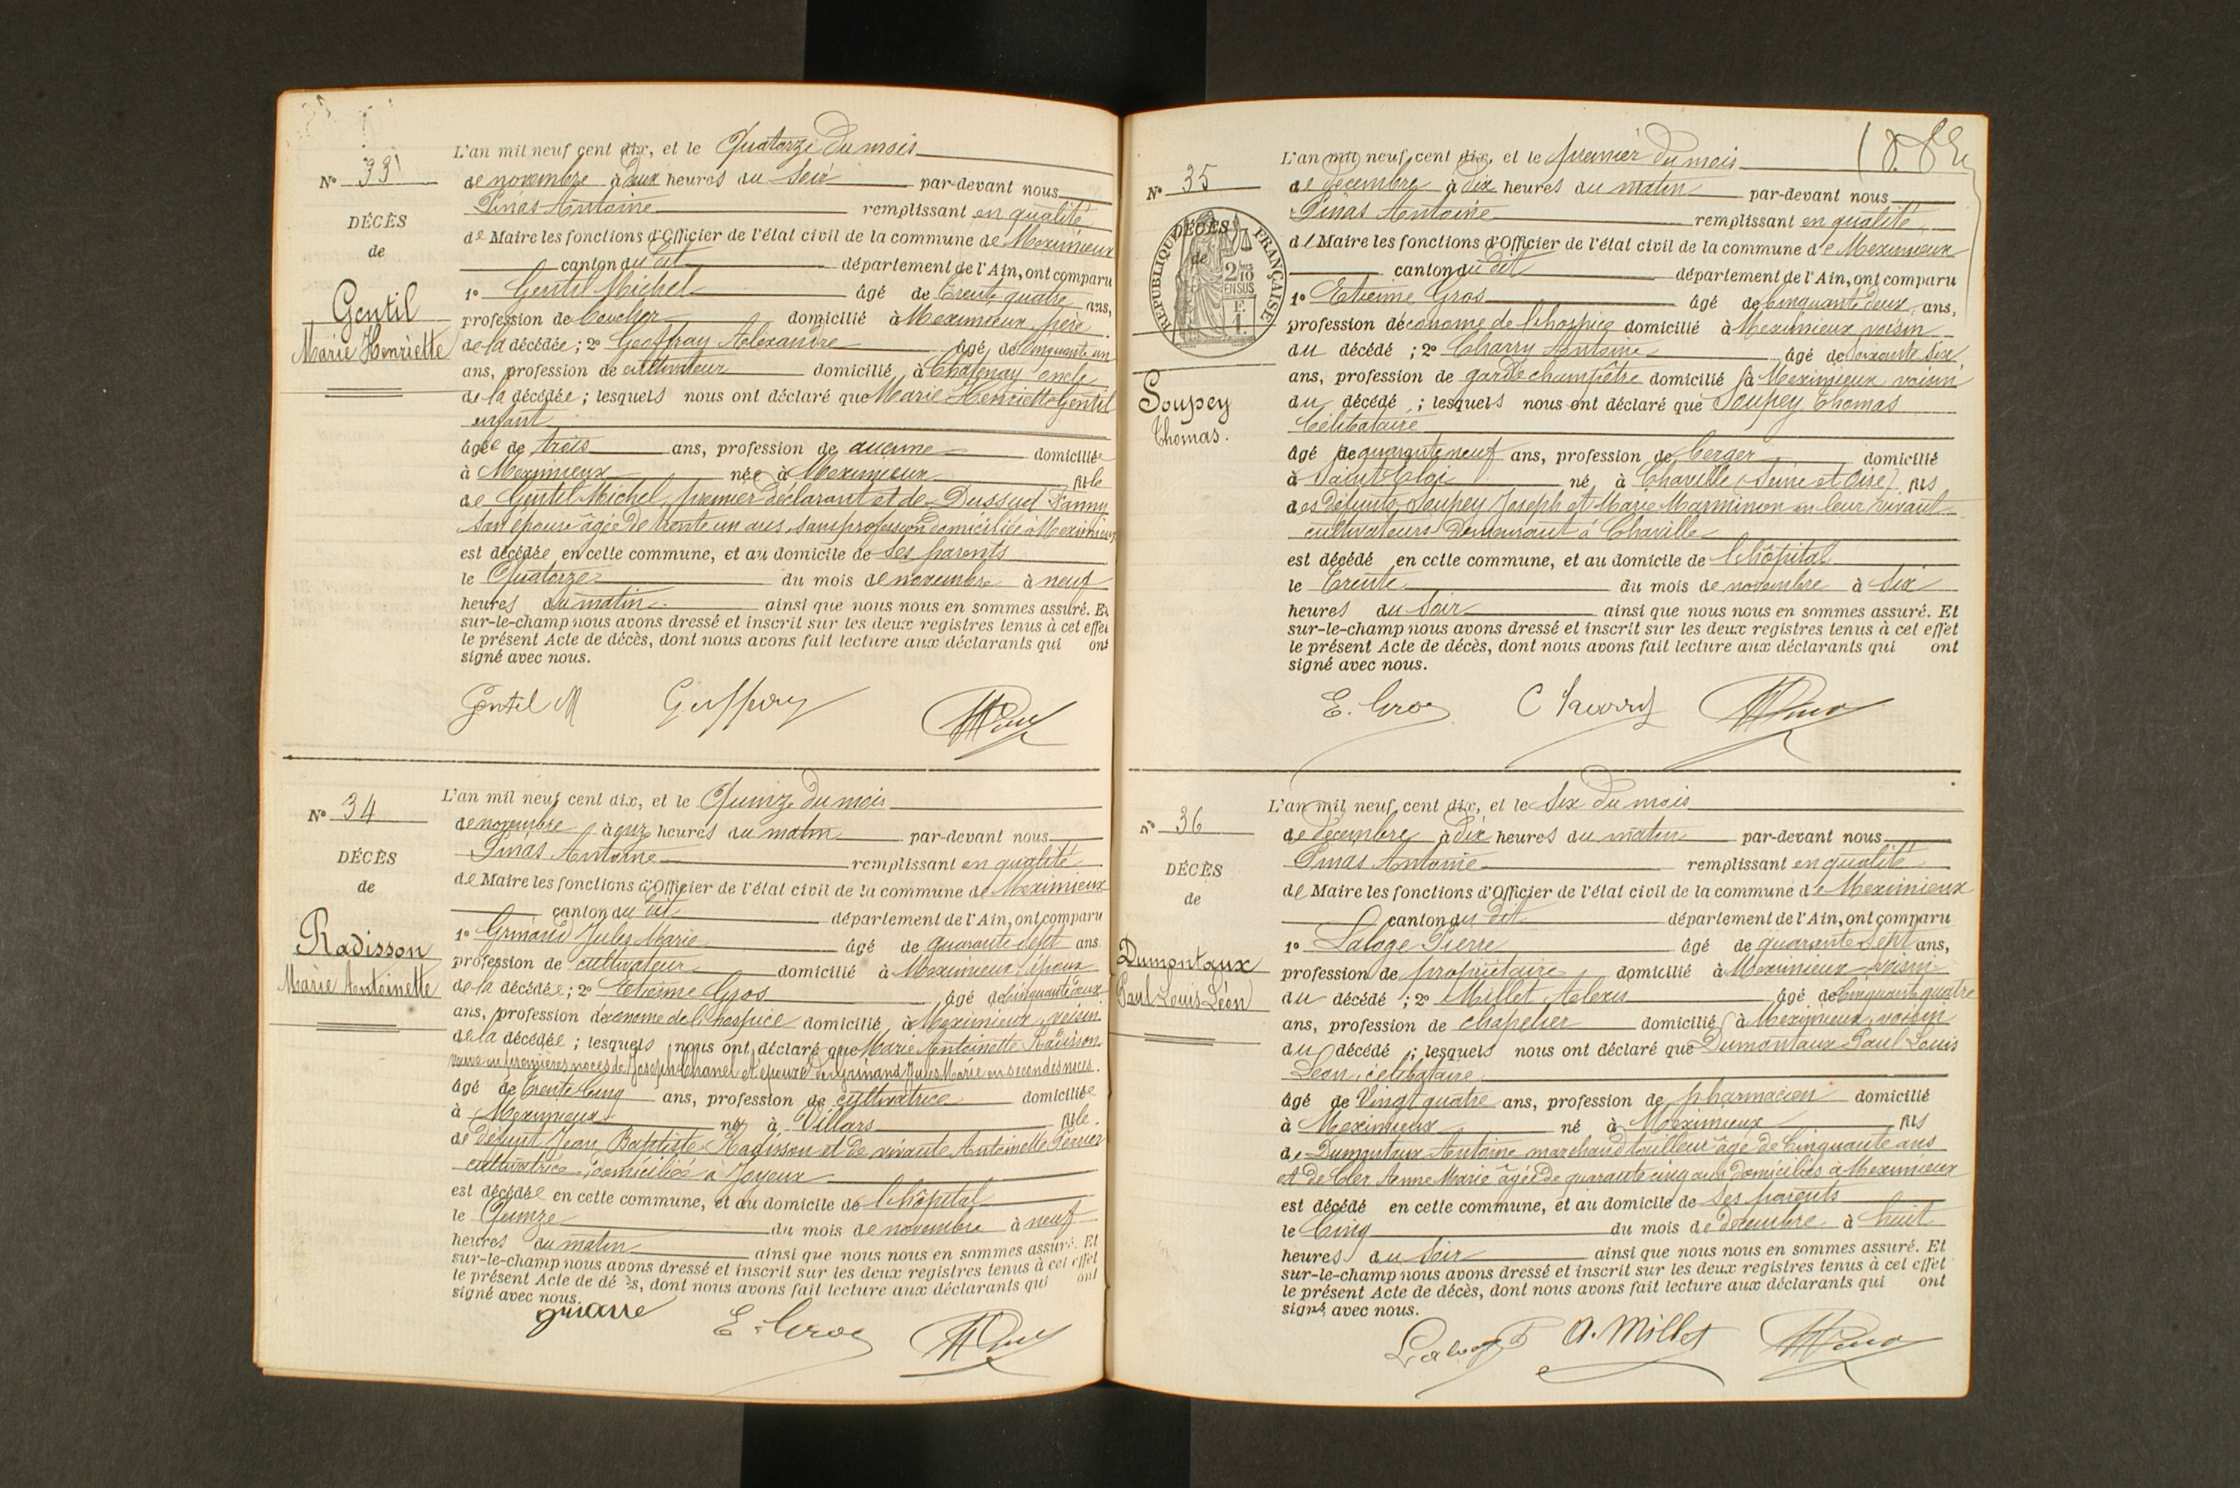 L'an mil neuf cent dix, et le Quatorze du mois
N° 33
de novembre à deux heures du soir par-devant nous
Pinas Antoine remplissant en qualité
DÉCÈS
de Maire les fonctions d'Officier de l'état civil de la commune de Meximieux
de
canton du dit département de l'Ain, ont comparu
Gentil
1° Gentil Michel âgé de trente quatre ans,
profession de boucher domicilié à Meximieux, père
Marie Henriette
de la décédée ; 2° Geoffray Alexandre âgé de cinquante un
ans, profession de cultivateur domicilié à Chatenay oncle
de la décédée ; lesquels nous ont déclaré que Marie Henriette Gentil
enfant
âgée de trois ans, profession de aucune domiciliée
à Meximieux née à Meximieux fille
de Gentil Michel, premier déclarant et de Dussud Fanny
son épouse âgée de trente un ans, sans profession domiciliée à Meximieux
est décédée en cette commune, et au domicile de ses parents
le Quatorze du mois de novembre à neuf
heures du matin ainsi que nous nous en sommes assuré. Et
sur-le-champ nous avons dressé et inscrit sur les deux registres tenus à cet effet
le présent Acte de décès, dont nous avons fait lecture aux déclarants qui ont
signé avec nous.
Gentil M
L'an mil neuf cent dix, et le Quinze du mois
N° 34
de novembre à onze heures du matin par-devant nous
Pinas Antoine remplissant en qualité
DÉCÈS
de Maire les fonctions d'Officier de l'état civil de la commune de Meximieux
de
canton du dit département de l'Ain, ont comparu
Radisson
1° Grinand Jules Marie âgé de quarante sept ans
profession de cultivateur domicilié à Meximieux, époux
Marie Antoinette
de la décédée ; 2° Etienne Gros âgé de cinquante deux
ans, profession d'économe de l'hospice domicilié à Meximieux, voisin
de la décédée ; lesquels nous ont déclaré que Marie Antoinette Radisson
veuve en premières noces de Joseph Chanel et épouse de Grinand Jules Marie en secondes noces.
âgé de trente cinq ans, profession de cultivatrice domiciliée
à Meximieux né à Villars fille
de défunt Jean Baptiste Radisson et de vivante Antoinette Perrier
cultivatrice domiciliée à Joyeux
est décédée en cette commune, et au domicile de l'hôpital
le Quinze du mois de novembre à neuf
heures du matin ainsi que nous nous en sommes assuré. Et
sur-le-champ nous avons dressé et inscrit sur les deux registres tenus à cet effet
le présent Acte de décès, dont nous avons fait lecture aux déclarants qui ont
signé avec nous.
E. Gros
L'an mil neuf cent dix, et le premier du mois
N° 35
de décembre à dix heures du matin par-devant nous
Pinas Antoine remplissant en qualité
DÉCÈS
de
RÉPUBLIQUE FRANÇAISE
2/10 EN SUS
de Maire les fonctions d'Officier de l'état civil de la commune de Meximieux
canton du dit département de l'Ain, ont comparu
1° Etienne Gros âgé de cinquante deux ans,
profession d'économe de l'hospice domicilié à Meximieux voisin
du décédé ; 2° Charry Antoine âgé de soixante six
ans, profession de garde champêtre domicilié à Meximieux voisin
Soupey
Thomas.
du décédé ; lesquels nous ont déclaré que Soupey Thomas
célibataire
âgé de quarante neuf ans, profession de berger domicilié
à Saint Eloi né à Chaville (Seine et Oise) fils
des défunts Soupey Joseph et Marie Marminon en leur vivant
cultivateurs demeurant à Chaville
est décédé en cette commune, et au domicile de l'hôpital
le trente du mois de novembre à six
heures du soir ainsi que nous nous en sommes assuré. Et
sur-le-champ nous avons dressé et inscrit sur les deux registres tenus à cet effet
le présent Acte de décès, dont nous avons fait lecture aux déclarants qui ont
signé avec nous.
E. Gros
L'an mil neuf cent dix, et le six du mois
N° 36
de décembre à dix heures du matin par-devant nous
Pinas Antoine remplissant en qualité
DÉCÈS
de Maire les fonctions d'Officier de l'état civil de la commune de Meximieux
de
canton du dit département de l'Ain, ont comparu
Dumontaux
1° Laloge Pierre âgé de quarante sept ans,
profession de propriétaire domicilié à Meximieux voisin
Paul Louis Léon
du décédé ; 2° Millet Alexis âgé de cinquante quatre
ans, profession de chapelier domicilié à Meximieux, voisin
du décédé ; lesquels nous ont déclaré que Dumontaux Paul Louis
Léon, célibataire
âgé de vingt quatre ans, profession de pharmacien domicilié
à Meximieux né à Meximieux fils
de Dumontaux Antoine marchand tailleur âgé de cinquante ans
et de Cler Anne Marie âgée de quarante cinq ans domiciliés à Meximieux
est décédé en cette commune, et au domicile de ses parents
le cinq du mois de décembre à huit
heures du soir ainsi que nous nous en sommes assuré. Et
sur-le-champ nous avons dressé et inscrit sur les deux registres tenus à cet effet
le présent Acte de décès, dont nous avons fait lecture aux déclarants qui ont
signé avec nous.
A. Millet